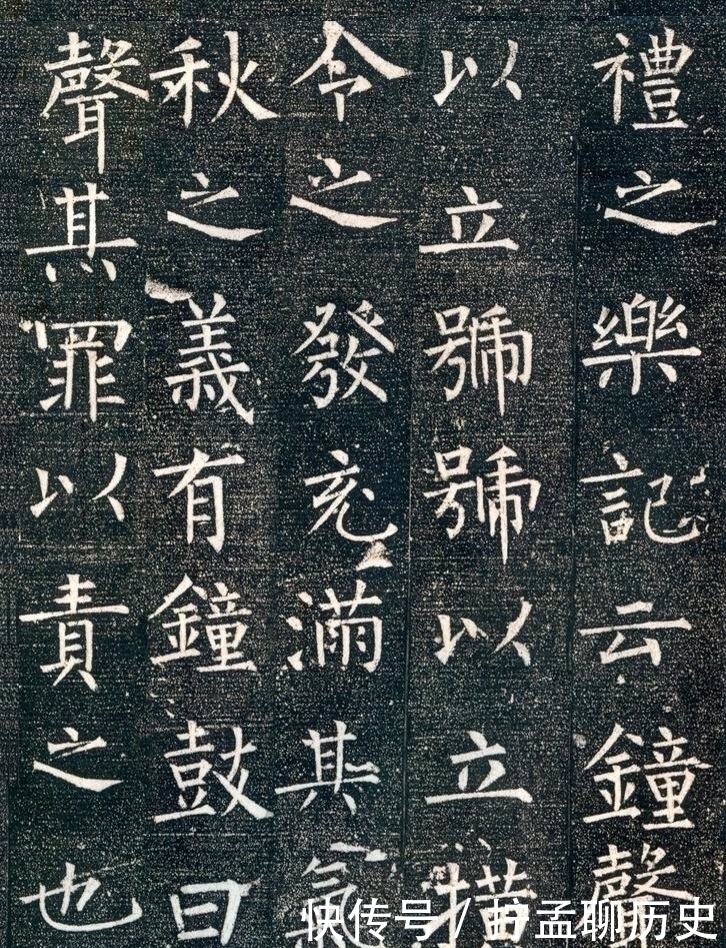 禮之樂記云鐘聲
以立號號以立
令之發充滿其氣
秋之義有鐘鼓曰
聲其罪以責之也
快传号 / 孟聊历史